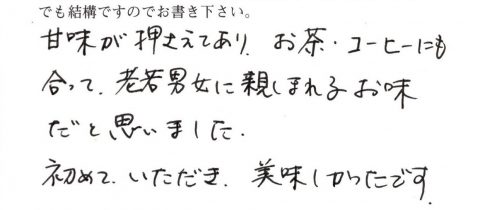 でも結構ですのでお書き下さい。
甘味が押さえてあり、お茶・コーヒーにも
合って、老若男女に親しまれるお味
だと思いました.
初めて、いただき、美味しかったです.